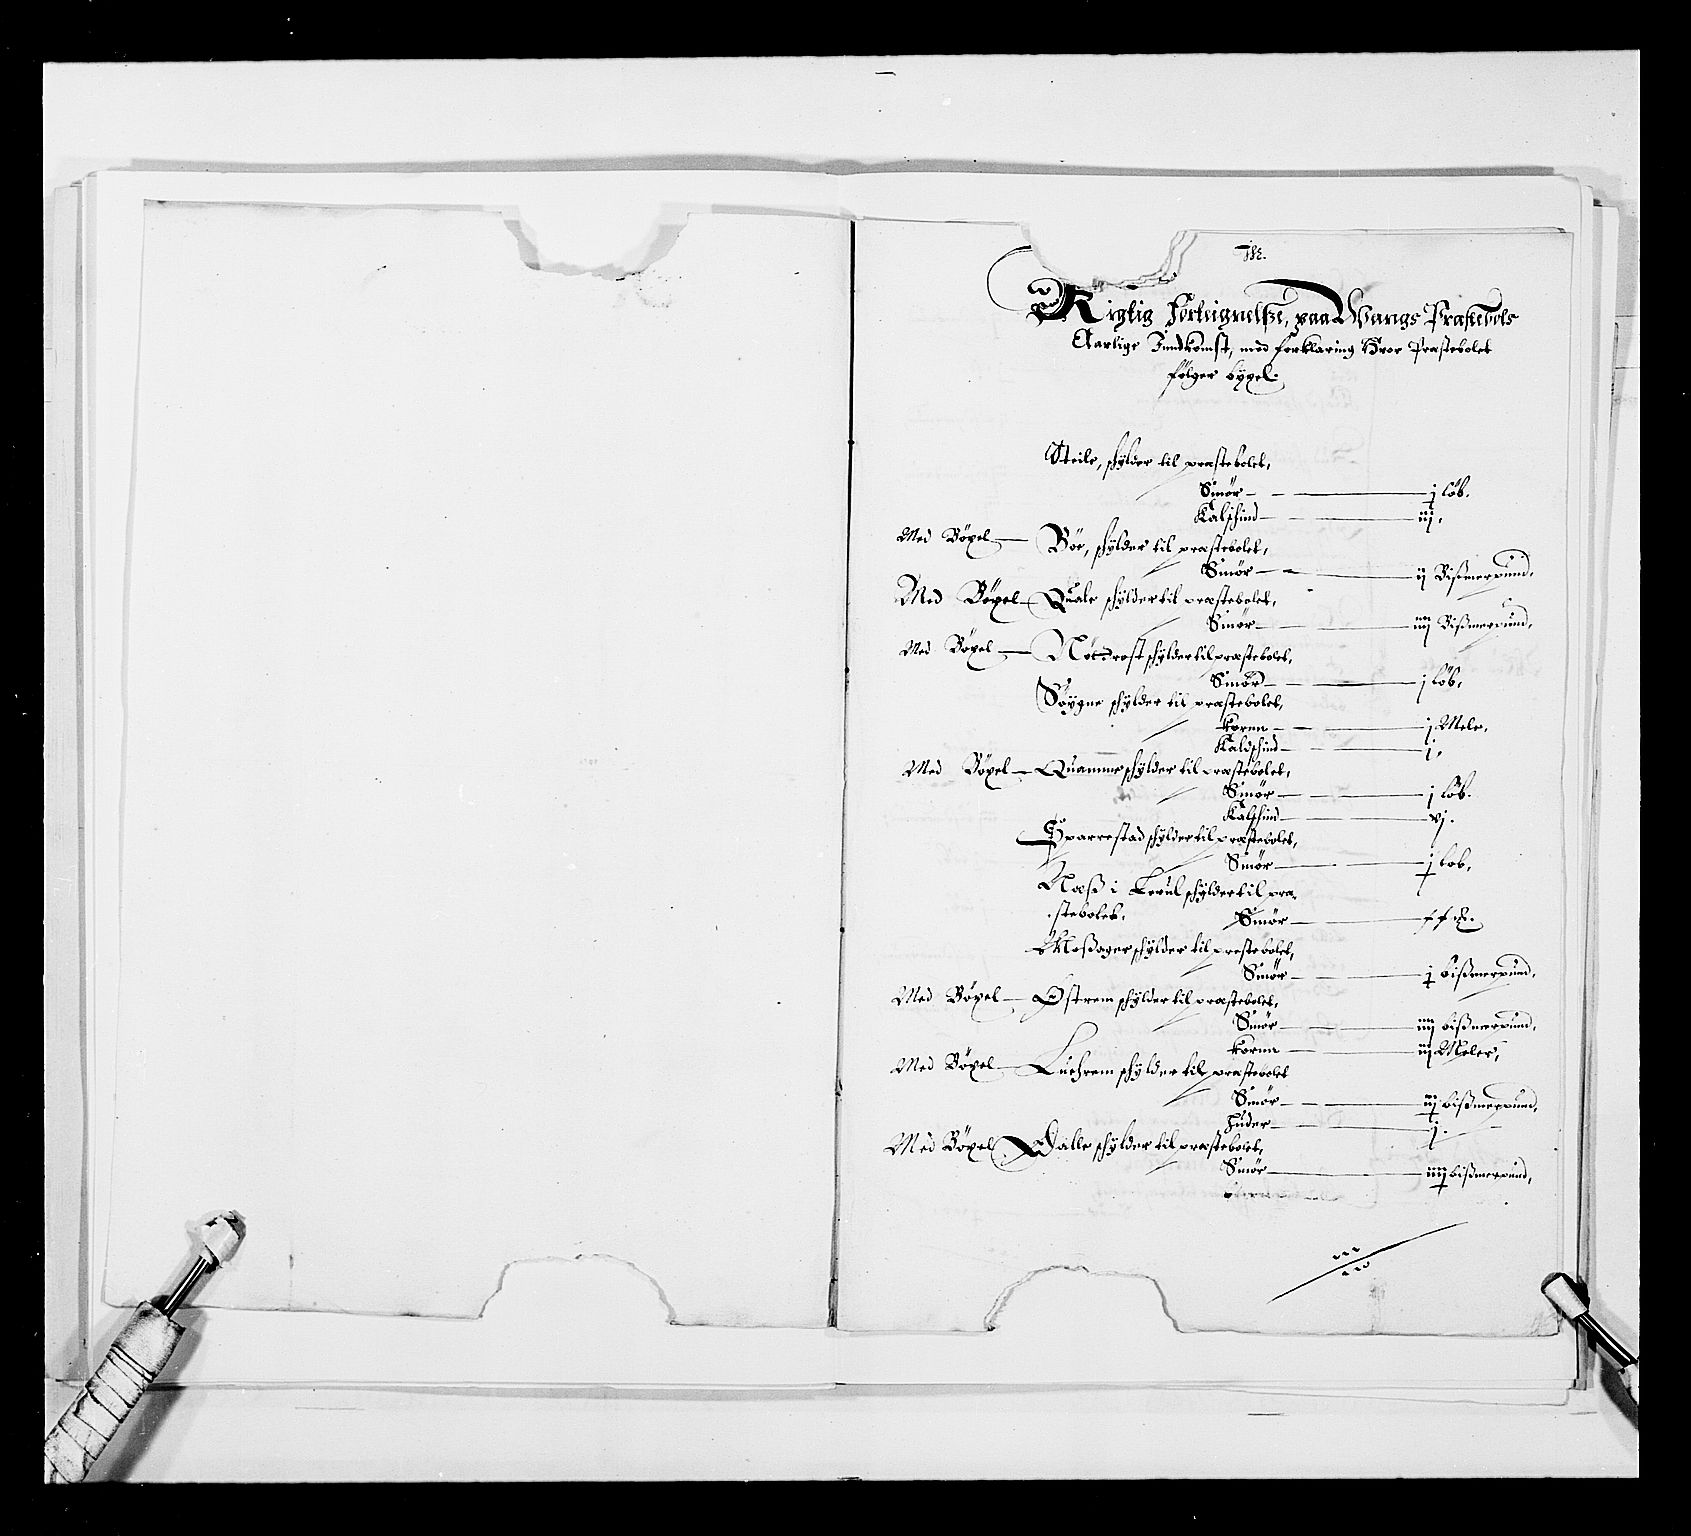 Rigtig Forteignelße, paa Wangs Præstebols
Aarlige Indkomst, med forklaring Hvor Præstebolet
følger bygel.
Steile, schylder til præstebolet,
Smör — j löb.
Kalschind — iij.
Med Böxel — Böe, schylder til præstebolet,
Smör — ij Bißmerpund.
Med Böxel — Quale schylder til præstebolet,
Smör — iiij Bißmerpund.
Med Böxel — schylder til præstebolet,
Smör — j löb,
Söygne schylder til præstebolet,
korn — j Mele.
Kaldschind — j.
Med Böxel — Quamme schylder til præstebolet,
Smör — j löb.
Kalschind — vj.
Sparrestad schylder til præstebolet,
Smör — j löb,
Næß i schylder til præ-
stebolet. Smör —
Moßager schylder til prestebolet,
Smör — j bißmerpund,
Med Böxel — Östrem schylder til præstebolet,
Smör — iiij bißmerpund,
korn — iij Meler,
Med Böxel — schylder til præstebolet
Smör — iij bißmerpund,
Huder — j.
Med Böxel Dalle schylder til præstebolet,
Smör — iiij bißmerpund,